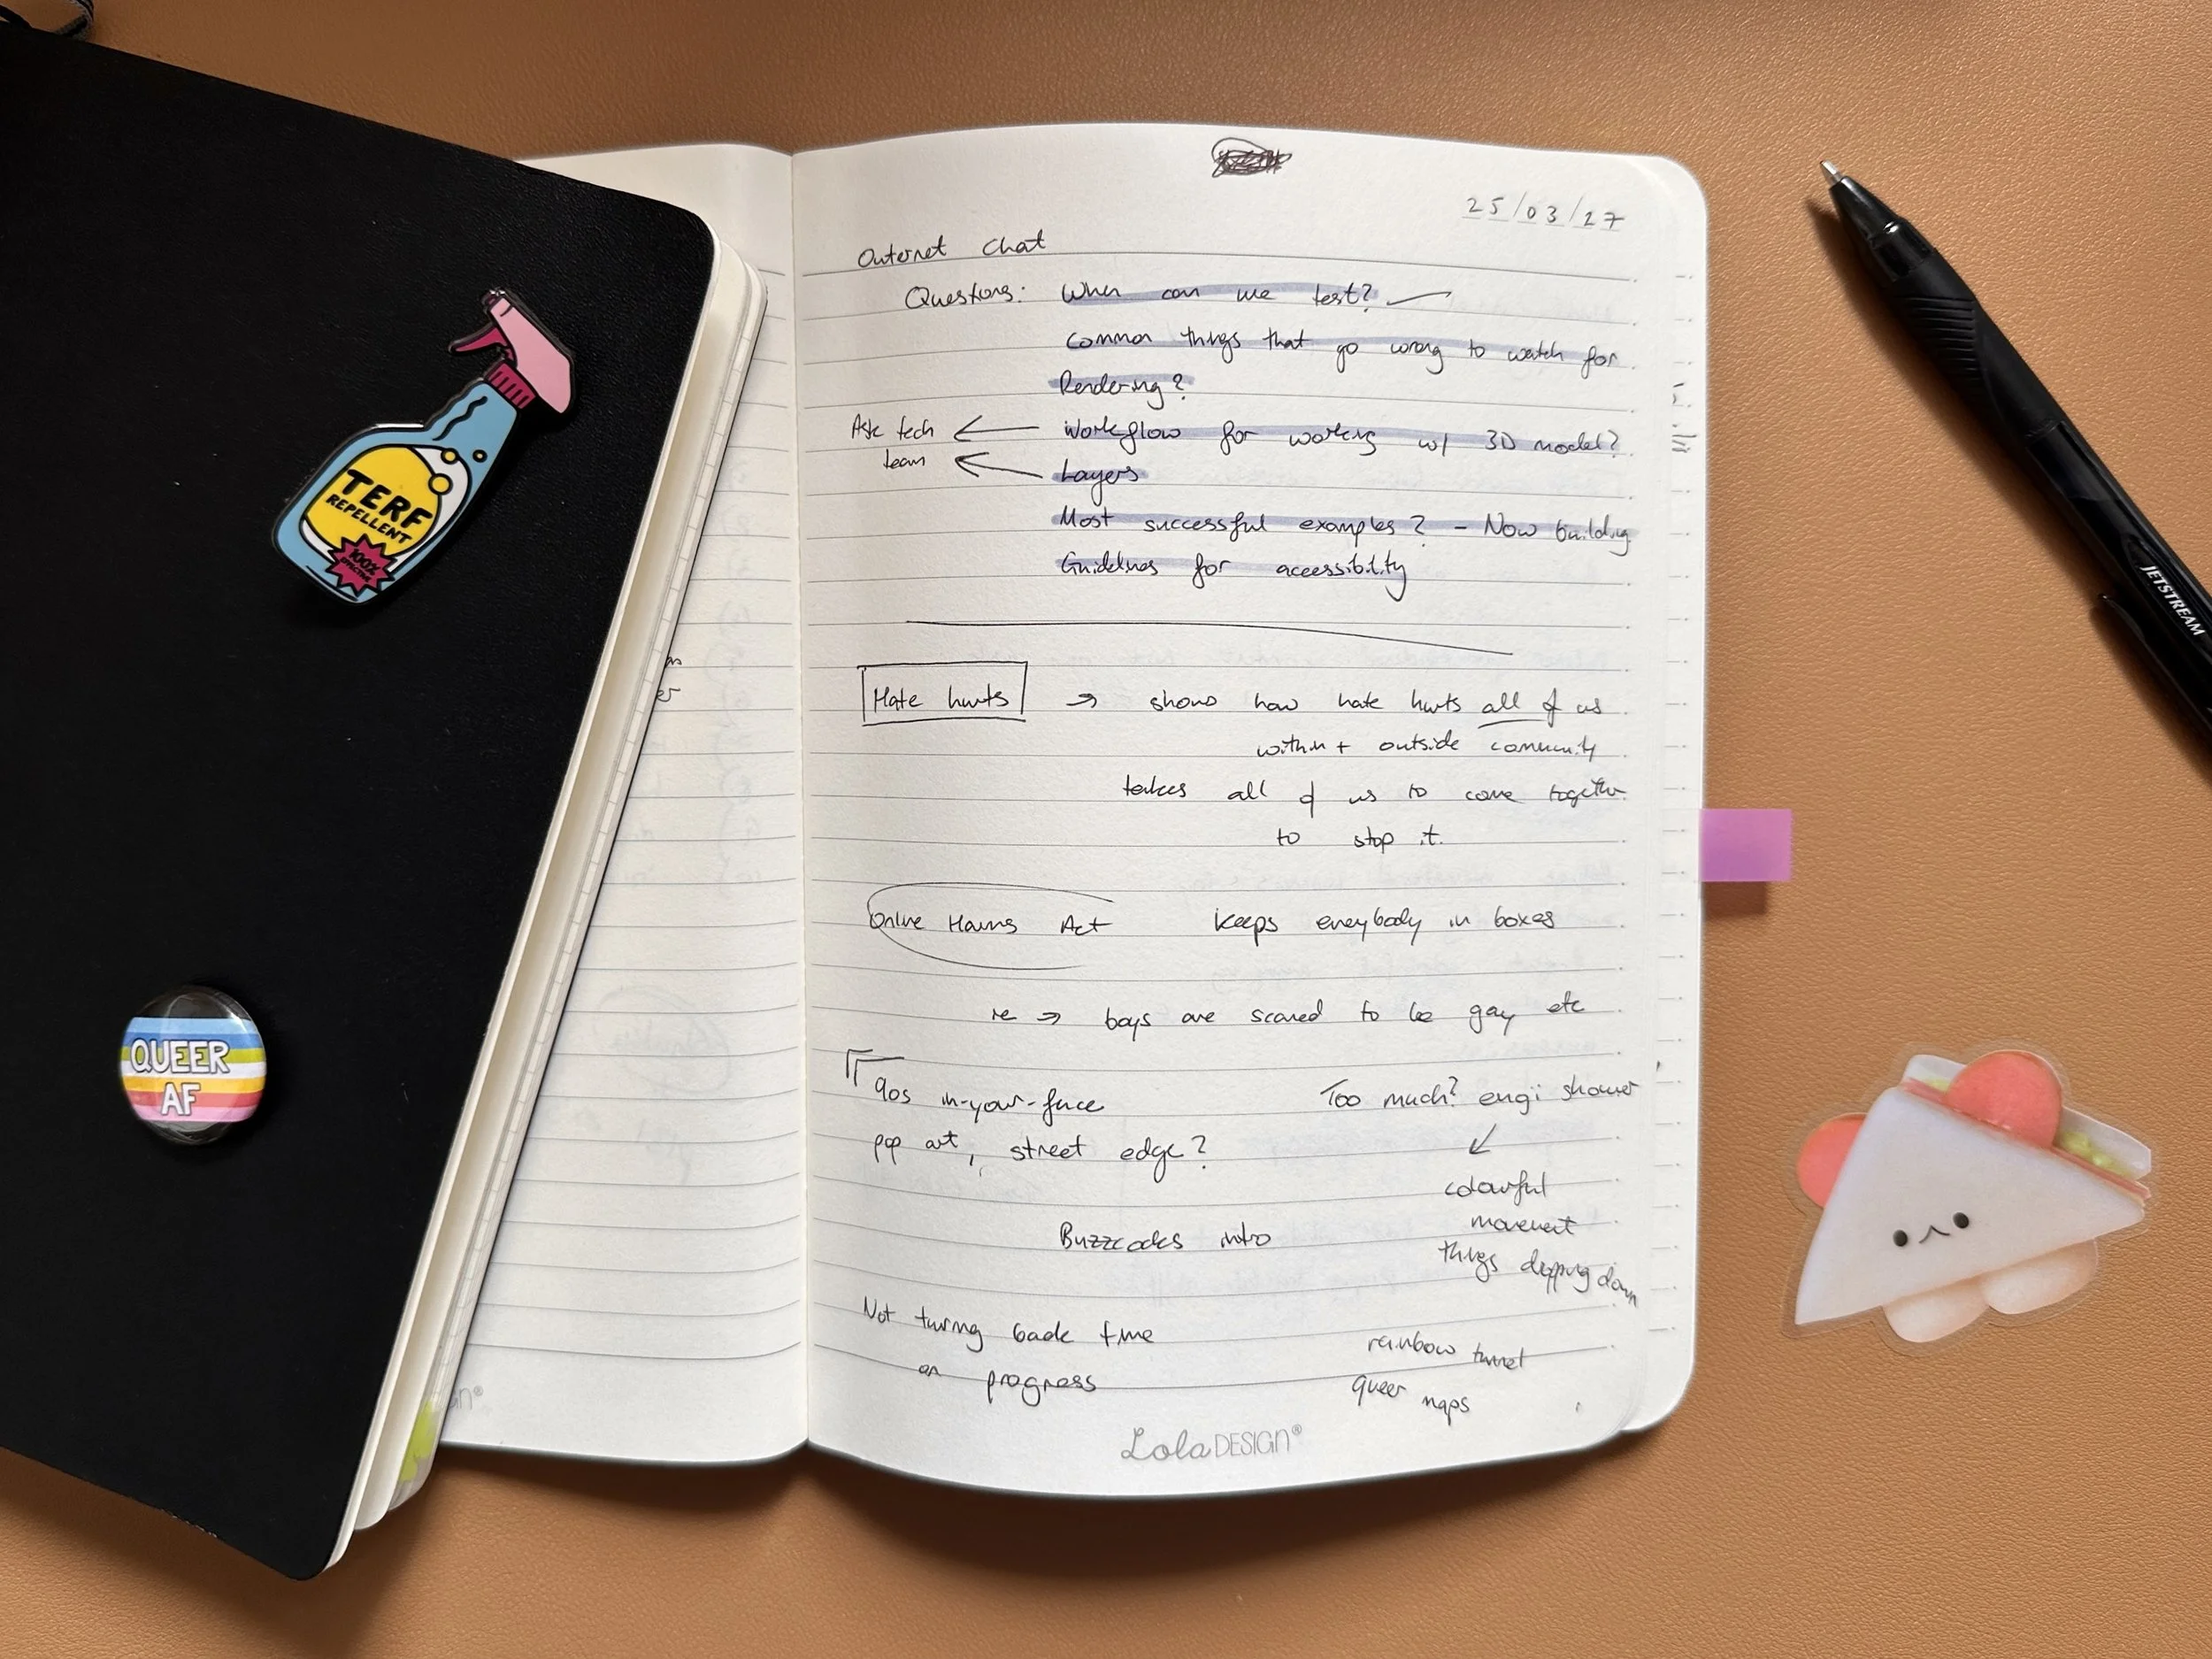 25/03/27
Outernet Chat
Questions: When can we test?
Common things that go wrong to watch for
Rendering?
Ask tech team
Workflow for working w/ 3D model?
Layers
Most successful examples? - Now building
Guidelines for accessibility
Hate hurts → shows how hate hurts all of us
within + outside community
takes all of us to come together
to stop it.
Online Harms Act keeps everybody in boxes
re → boys are scared to be gay etc
90s in-your-face
pop art, street edge?
Too much? shower
colourful
movement
things dripping down
Buzzcocks intro
Not turning back time
on progress
rainbow tunnel
queer maps
Lola DESIGN®
TERF
REPELLENT
100%
EFFECTIVE
QUEER
AF
JETSTREAM